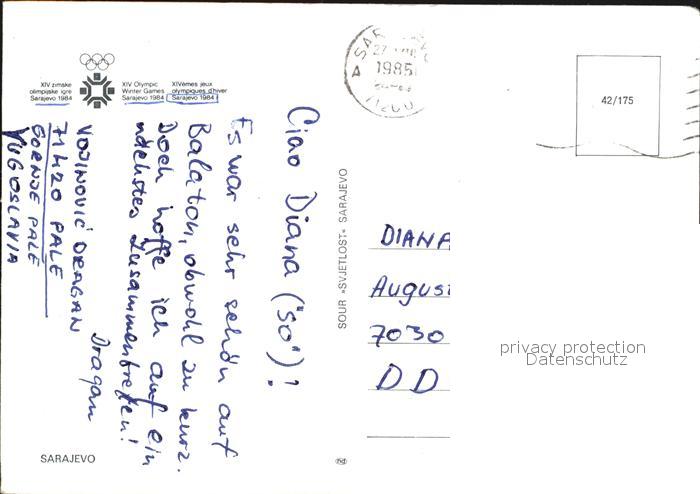 XIV zimske
olimpijske igre
Sarajevo 1984
XIV Olympic
Winter Games
Sarajevo 1984
XIVèmes jeux
olympiques d'hiver
Sarajevo 1984
Ciao Diana ("50")!
Es war sehr schön auf
Balaton, obwohl zu kurz.
Doch hoffe ich auf ein
nächstes Zusammentreffen!
Dragan
VOJINOVIĆ DRAGAN
71420 PALE
GORNJE PALE
YUGOSLAVIA
SARAJEVO
SOUR »SVJETLOST« SARAJEVO
1985
42/175
DIANA
August
7030
DD
privacy protection
Datenschutz